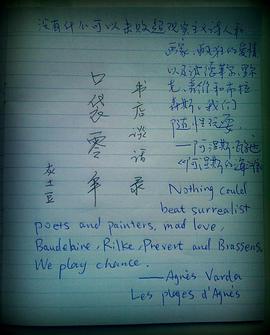 没有什么可以击败超现实主义诗人和
画家,疯狂的爱情
以及波德莱尔、里尔
克、普维和布拉
森斯。我们
随性玩耍。
——阿涅斯·瓦尔达
《阿涅斯的海滩》
书店谈话录
口袋零年
炭土豆
Nothing could
beat surrealist
poets and painters, mad love,
Baudelaire, Rilke, Prevert and Brassens,
We play chance.
——Agnès Varda
Les plages d'Agnès